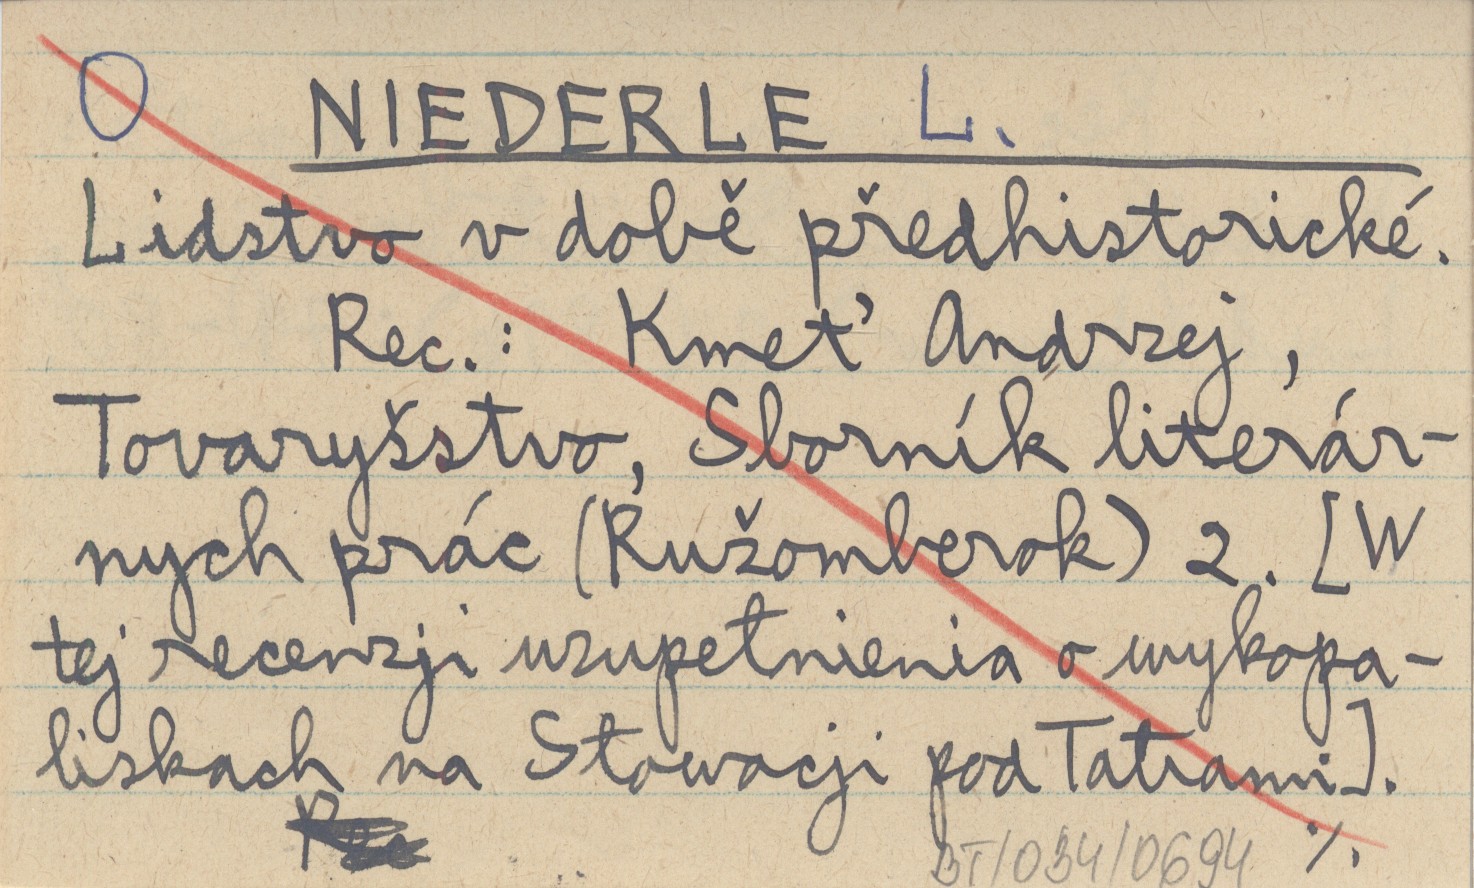 O NIEDERLE L.
Lidstvo v době předhistorické.
Rec.: Kmet' Andrzej,
Tovaryšstvo, Sborník literár-
nych prác (Ružomberok) 2. [W
tej recenzji uzupełnienia o wykopa-
liskach na Słowacji pod Tatrami].
BT/034/0694 ./.